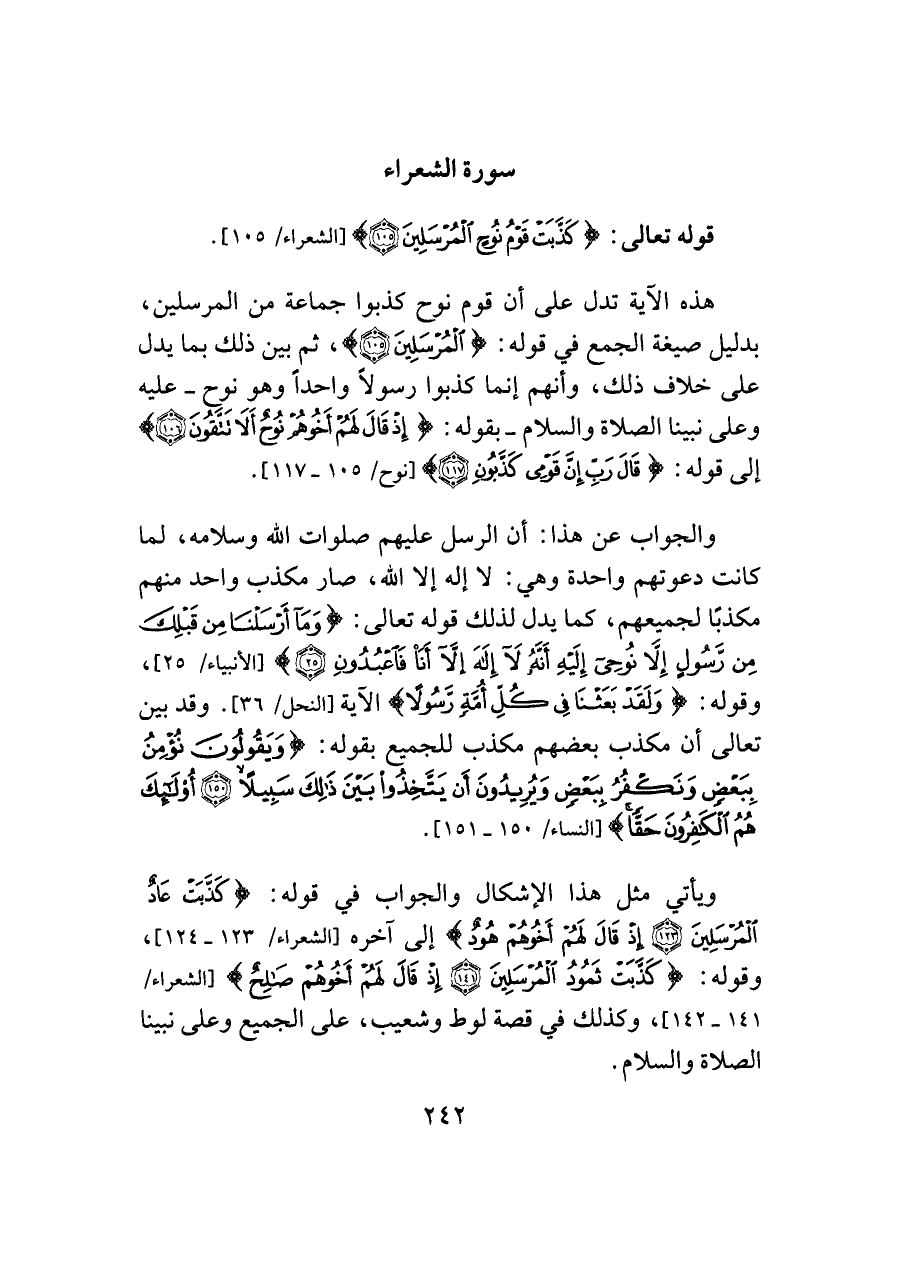 سورة الشعراء
قوله تعالى: ﴿ كَذَّبَتْ قَوْمُ نُوحٍ الْمُرْسَلِينَ ١٠٥ ﴾ [الشعراء/ ١٠٥].
هذه الآية تدل على أن قوم نوح كذبوا جماعة من المرسلين،
بدليل صيغة الجمع في قوله: ﴿ الْمُرْسَلِينَ ١٠٥ ﴾، ثم بين ذلك بما يدل
على خلاف ذلك، وأنهم إنما كذبوا رسولاً واحداً وهو نوح ـ عليه
وعلى نبينا الصلاة والسلام ـ بقوله: ﴿ إِذْ قَالَ لَهُمْ أَخُوهُمْ نُوحٌ أَلَا تَتَّقُونَ ١٠٦ ﴾
إلى قوله: ﴿ قَالَ رَبِّ إِنَّ قَوْمِى كَذَّبُونِ ١١٧ ﴾ [نوح/ ١٠٥ ـ ١١٧].
والجواب عن هذا: أن الرسل عليهم صلوات الله وسلامه، لما
كانت دعوتهم واحدة وهي: لا إله إلا الله، صار مكذب واحد منهم
مكذبًا لجميعهم، كما يدل لذلك قوله تعالى: ﴿ وَمَآ أَرْسَلْنَا مِن قَبْلِكَ
مِن رَّسُولٍ إِلَّا نُوحِىٓ إِلَيْهِ أَنَّهُۥ لَآ إِلَٰهَ إِلَّآ أَنَا۠ فَٱعْبُدُونِ ٢٥ ﴾ [الأنبياء/ ٢٥]،
وقوله: ﴿ وَلَقَدْ بَعَثْنَا فِى كُلِّ أُمَّةٍ رَّسُولًا ﴾ الآية [النحل/ ٣٦]. وقد بين
تعالى أن مكذب بعضهم مكذب للجميع بقوله: ﴿ وَيَقُولُونَ نُؤْمِنُ
بِبَعْضٍ وَنَكْفُرُ بِبَعْضٍ وَيُرِيدُونَ أَن يَتَّخِذُوا۟ بَيْنَ ذَٰلِكَ سَبِيلًا ١٥٠ أُو۟لَٰٓئِكَ
هُمُ ٱلْكَٰفِرُونَ حَقًّا ﴾ [النساء/ ١٥٠ ـ ١٥١].
ويأتي مثل هذا الإشكال والجواب في قوله: ﴿ كَذَّبَتْ عَادٌ
ٱلْمُرْسَلِينَ ١٢٣ إِذْ قَالَ لَهُمْ أَخُوهُمْ هُودٌ ﴾ إلى آخره [الشعراء/ ١٢٣ ـ ١٢٤]،
وقوله: ﴿ كَذَّبَتْ ثَمُودُ ٱلْمُرْسَلِينَ ١٤١ إِذْ قَالَ لَهُمْ أَخُوهُمْ صَٰلِحٌ ﴾ [الشعراء/
١٤١ ـ ١٤٢]، وكذلك في قصة لوط وشعيب، على الجميع وعلى نبينا
الصلاة والسلام.
٢٤٢